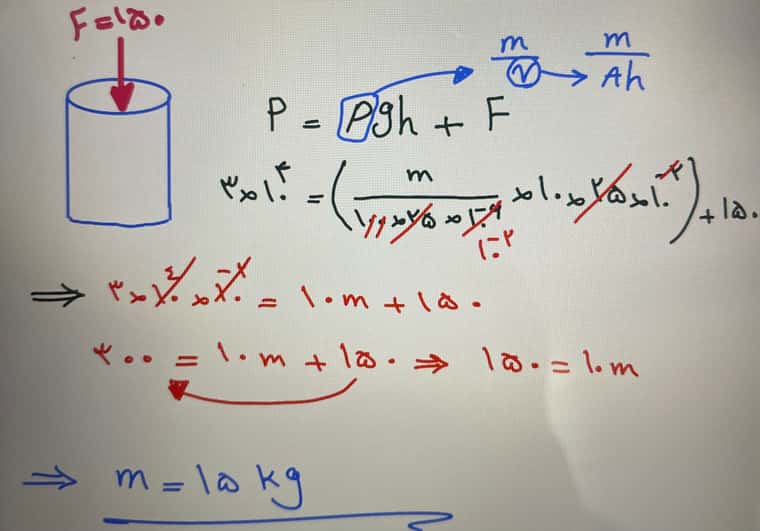 F = ۱۵۰
m/V → m/Ah
P = ρgh + F
۳×۱۰^۴ = (m/(۱۰۰×۲۵×۱۰^-۶) ×۱۰×۲۵×۱۰^-۲) + ۱۵۰
۱۰^-۲
⇒ ۳×۱۰^۴×۱۰^-۲ = ۱۰m + ۱۵۰
۳۰۰ = ۱۰m + ۱۵۰ ⇒ ۱۵۰ = ۱۰m
⇒ m = ۱۵ kg